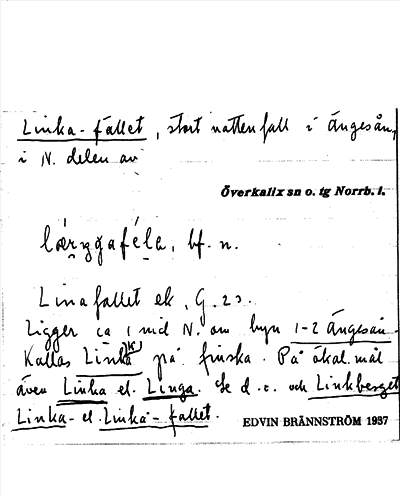 Linka-fallet, stort vattenfall i Ängesån,
i N. delen av
Överkalix sn o. tg Norrb. l.
bf. n.
Linafallet ek. G. 23.
Ligger ca 1 mil N. om byn 1-2 Ängesån
Kallas Linka på finska. På ökal. mål
även Linka el. Linga. Se d. o. och Linkberget
Linka- el. Linka-fallet.
EDVIN BRÄNNSTRÖM 1937